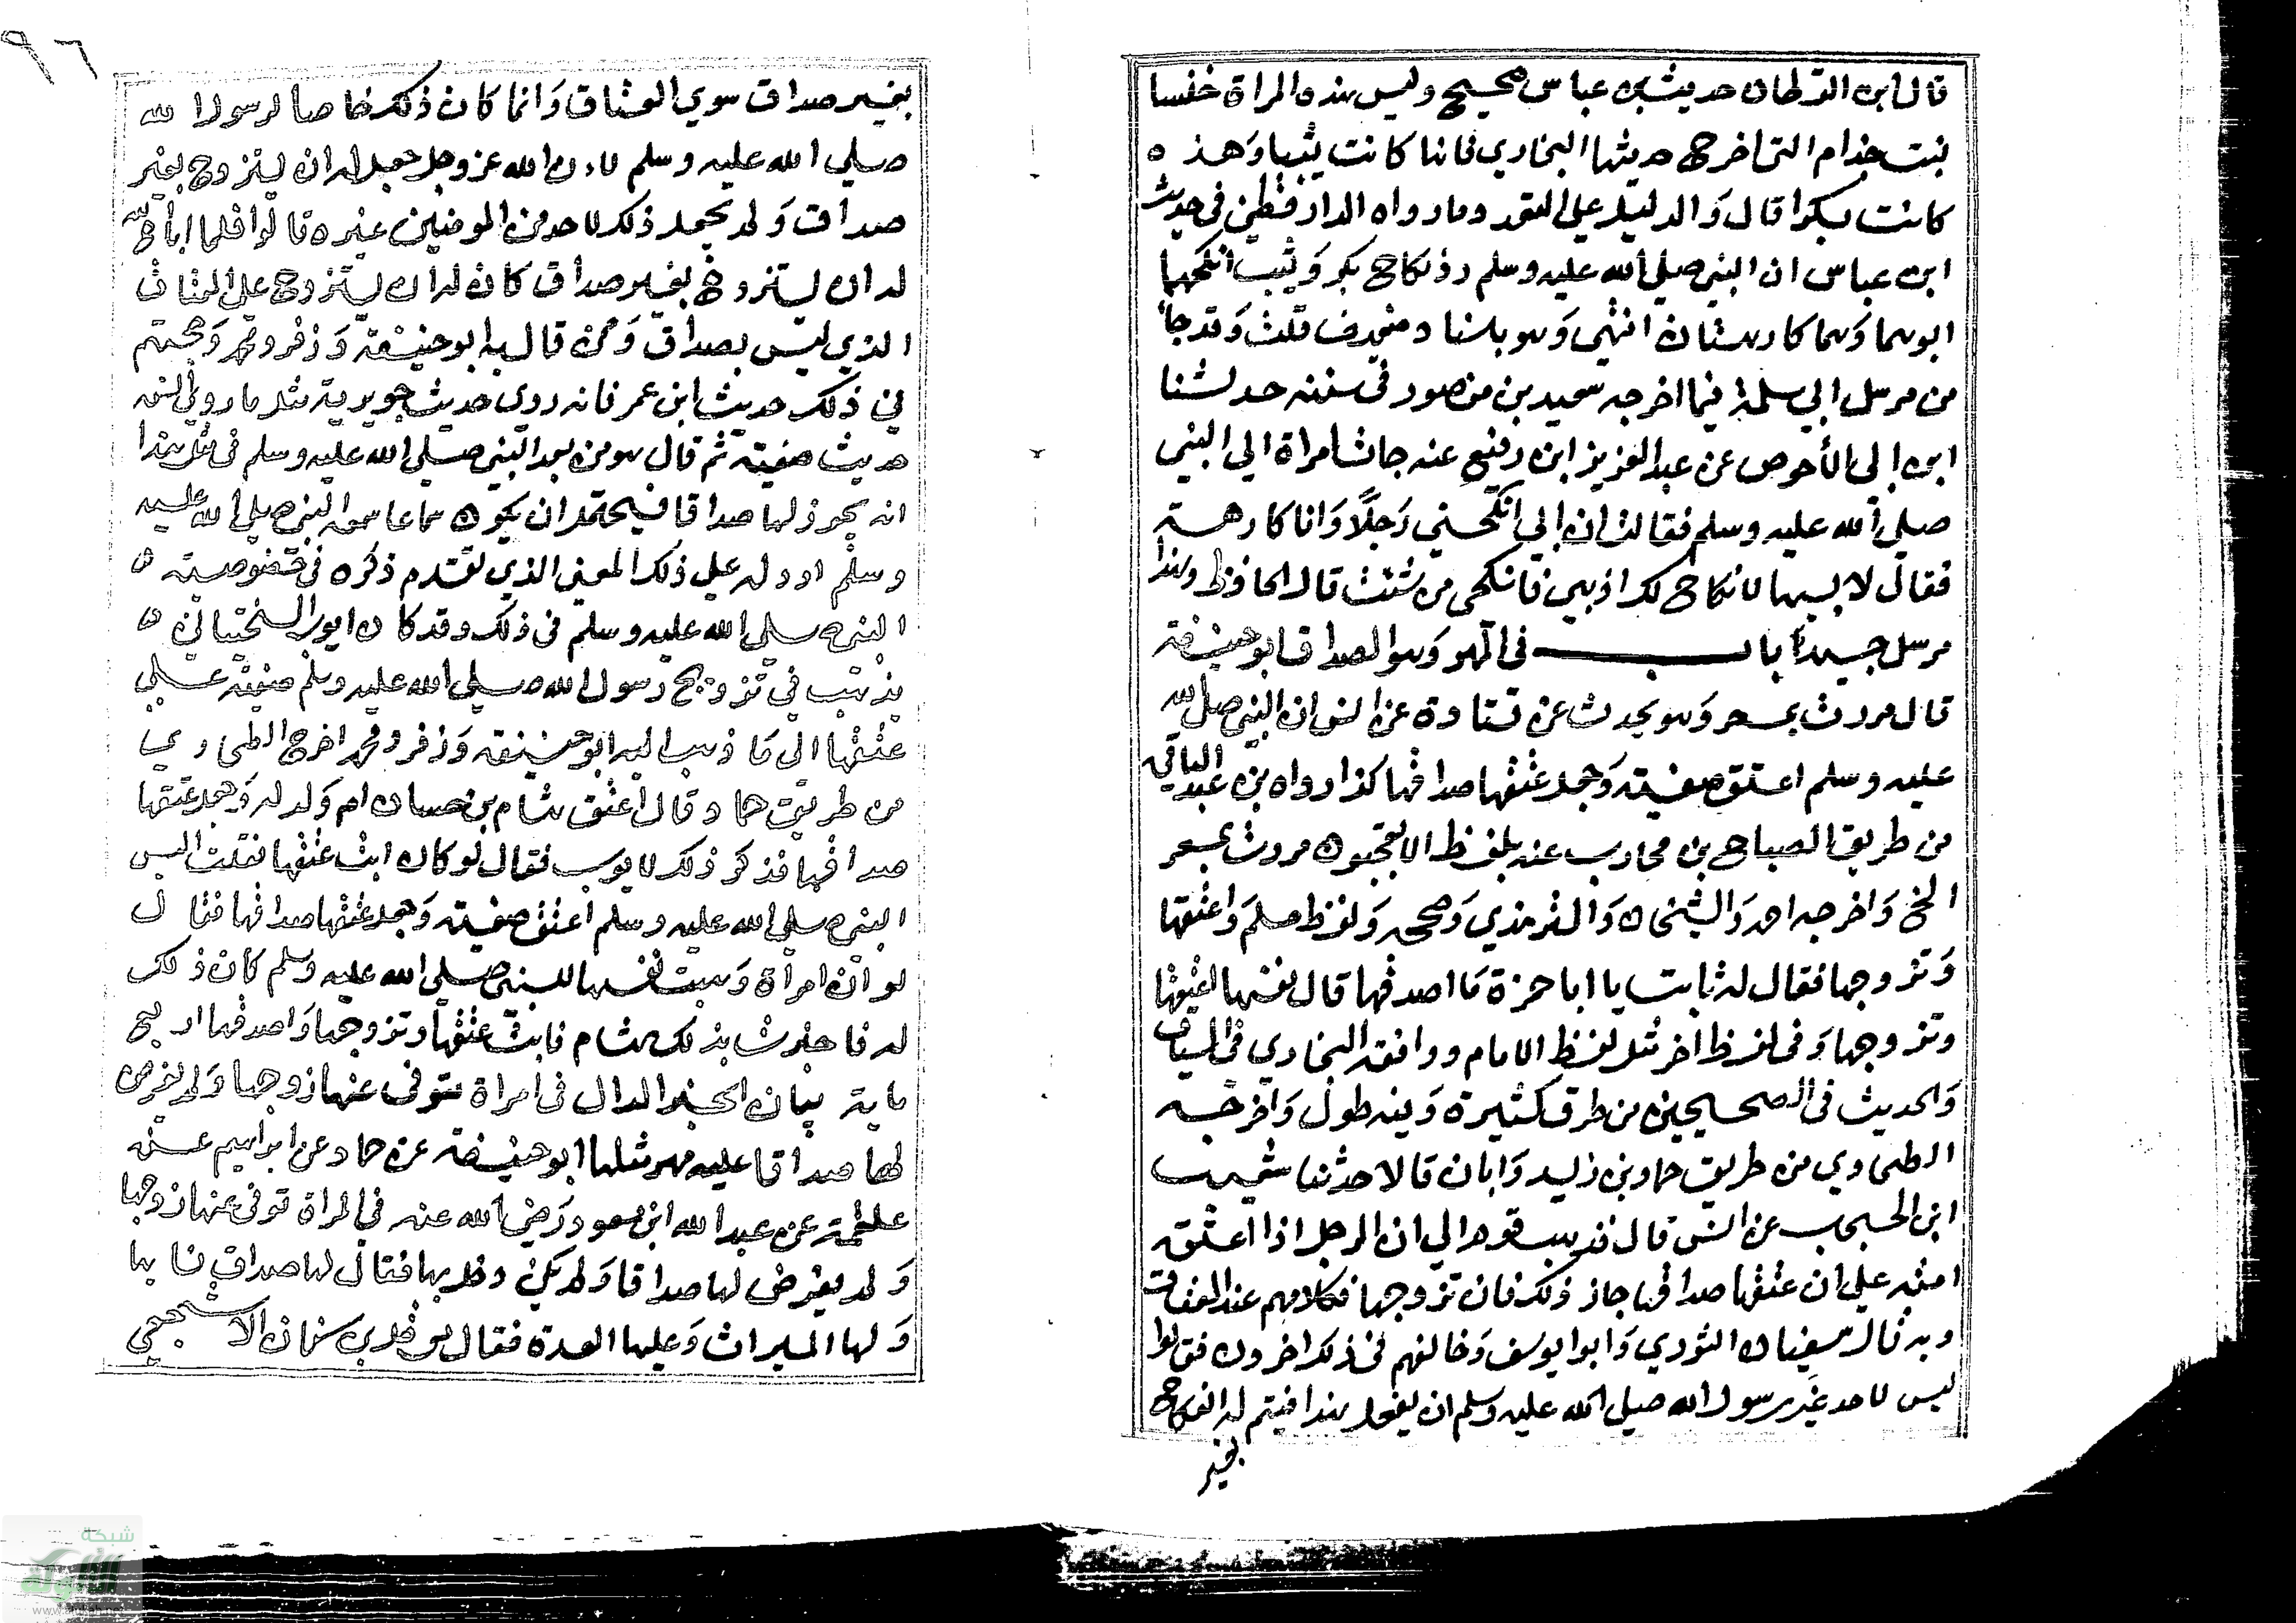 قال ابن القطان حديث بن عباس صحيح وليس هذه المراة خنسا
بنت خذام التى اخرج حديثها البخاري فانها كانت ثيبا وهذه
كانت بكرا قال والدليل على التعدد ما رواه الدارقطني فى حديث
ابن عباس ان النبي صلي الله عليه وسلم رد نكاح بكر وثيب انكحهما
ابوهما وهما كارهتان انتهى وهو باسناد ضعيف قلت وقد جا
من مرسل ابي سلمة فيما اخرجه سعيد بن منصور فى سننه حدثنا
ابن ابى الأحوص عن عبد العزيز ابن رفيع عنه جات امراة الي النبي
صلي الله عليه وسلم فقالت ان ابي انكحني رجلًا وانا كارهة
فقال لابيها لا نكاح لك اذهبي فانكحى من شئت قال الحافظ وهذا
مرسل جيد باب فى المهر وهو الصداق ابو حنيفة
قال مررت بمسعر وهو يحدث عن قتادة عن انس ان النبي صلى الله
عليه وسلم اعتق صفية وجعل عتقها صداقها كذا رواه بن عبد الباقي
من طريق الصباح بن محارب عنه بلفظ الا تعجبون مررت بمسعر
الخ واخرجه احمد والشيخان والترمذي وصححه ولفظ مسلم واعتقها
وتزوجها فقال له ثابت يا ابا حمزة ما اصدقها قال نفسها اعتقها
وتزوجها وفى لفظ اخر مثل لفظ الامام ووافقه البخاري في السياق
والحديث فى الصحيحين من طرق كثيرة وفيه طول واخرجه
الطحاوي من طريق حماد بن زيد وابان قالا حدثنا شعيب
ابن الحبحاب عن انس قال فذهب قوم الي ان الرجل اذا اعتق
امته علي ان عتقها صداقها جاز ذلك فان تزوجها فكلامهم عند العتاق
وبه قال سفيان الثوري وابو يوسف وخالفهم فى ذلك اخرون فقالوا
ليس لاحد غير رسول الله صلى الله عليه وسلم ان يفعل هذا فيتم له النكاح
بغير
٩٦
بغير صداق سوي العتاق وانما كان ذلك خاصا لرسول الله
صلي الله عليه وسلم لان الله عز وجل جعل له ان يتزوج بغير
صداق ولم يجعل ذلك لاحد من المومنين غيره قالوا فلما اباح الله
له ان يتزوج بغير صداق كان له ان يتزوج على العتاق
الذي ليس بصداق وممن قال به ابو حنيفة وزفر ومحمد وحجتهم
في ذلك حديث ابن عمر فانه روى حديث جويرية مثل ما روى انس
حديث صفية ثم قال هو من بعد النبي صلي الله عليه وسلم فى مثل هذا
انه يجوز لها صداقا فيحتمل ان يكون سماعا سمعه النبي صلي الله عليه
وسلم او دله على ذلك المعنى الذي تقدم ذكره فى خصوصية
النبي صلي الله عليه وسلم فى ذلك وقد كان ايوب السختياني
يذهب في تزويج رسول الله صلي الله عليه وسلم صفية علي
عتقها الى ما ذهب اليه ابو حنيفة وزفر ومحمد اخرج الطحاوي
من طريق حماد قال اعتق هشام بن حسان ام ولد له وجعل عتقها
صداقها فذكر ذلك لايوب فقال لو كان ابت عتقها فقلت اليس
النبي صلي الله عليه وسلم اعتق صفية وجعل عتقها صداقها فقال
لو ان امرأة وهبت نفسها للنبي صلي الله عليه وسلم كان ذلك
له فاخبرت بذلك هشام فابت عتقها وتزوجها واصدقها اربع
ماية بيان الخبر الدال فى امراة توفى عنها زوجها ولم يفرض
لها صداقا عليه مهر مثلها ابو حنيفة عن حماد عن ابراهيم عن
علقمة عن عبد الله ابن مسعود رضي الله عنه في المراة توفى عنها زوجها
ولم يفرض لها صداقا ولم يكن دخل بها فقال لها صداق نسايها
ولها الميراث وعليها العدة فقال معقل بن سنان الاشجعي
شبكة
الألوكة